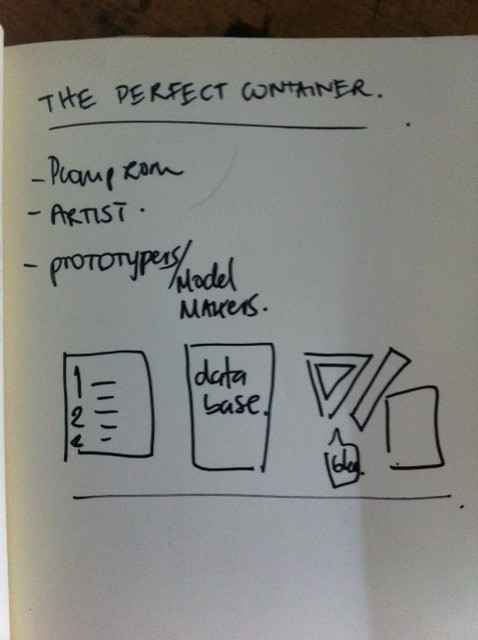 THE PERFECT CONTAINER.
-
- ARTIST.
- PROTOTYPERS/
MODEL
MAKERS.
1
2
data
base.